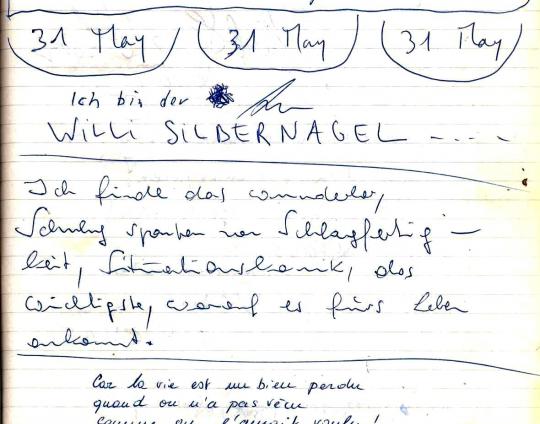 31 May 31 May 31 May
Ich bin der
WILLI SILBERNAGEL ----
Ich finde das wunderbar,
von Schlagfertig-
keit, Situationskomik, das
wichtigste, worauf es fürs Leben
ankommt.
Car la vie est un bien perdu
quand on n'a pas vécu
comme on l'aurait voulu!